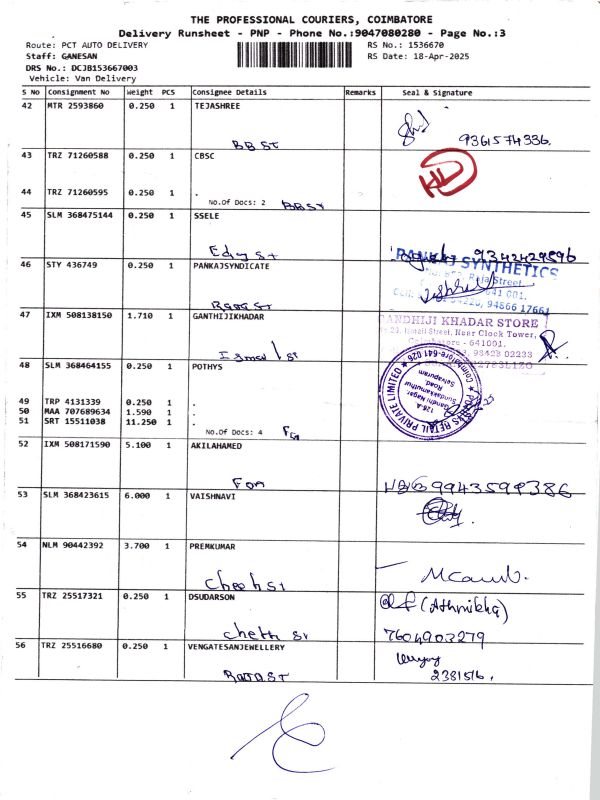 THE PROFESSIONAL COURIERS, COIMBATORE
Delivery Runsheet - PNP - Phone No.:9047080280 - Page No.:3
Route: PCT AUTO DELIVERY
RS No.: 1536670
Staff: GANESAN
RS Date: 18-Apr-2025
DRS No.: DCJB153667003
Vehicle: Van Delivery
S No Consignment No Weight PCS Consignee Details Remarks Seal & Signature
42 MTR 2593860 0.250 1 TEJASHREE
BB St 9361574336.
43 TRZ 71260588 0.250 1 CBSC
44 TRZ 71260595 0.250 1 .
No.Of Docs: 2 BBST
45 SLM 368475144 0.250 1 SSELE
9342429896
46 STY 436749 0.250 1 PANKAJSYNDICATE
PANKAJ SYNTHETICS
Raja Street
641 001.
94866 17661
47 IXM 508138150 1.710 1 GANTHIJIKHADAR
GANDHIJI KHADAR STORE
Ismail Street, Near Clock Tower,
Coimbatore - 641001.
98423 02233
48 SLM 368464155 0.250 1 POTHYS
49 TRP 4131339 0.250 1 .
50 MAA 707689634 1.590 1 .
51 SRT 15511038 11.250 1 .
No.Of Docs: 4
POTHYS RETAIL PRIVATE LIMITED
Coimbatore-641 026
126-A
Gandhi Nagar
Sundakkamuthur
Road,
Selvapuram
52 IXM 508171590 5.100 1 AKILAHAMED
9943599386
53 SLM 368423615 6.000 1 VAISHNAVI
54 NLM 90442392 3.700 1 PREMKUMAR
55 TRZ 25517321 0.250 1 DSUDARSON
(Athmikha)
Chetti St 7604903279
56 TRZ 25516680 0.250 1 VENGATESANJEWELLERY
Raja ST 2381516.